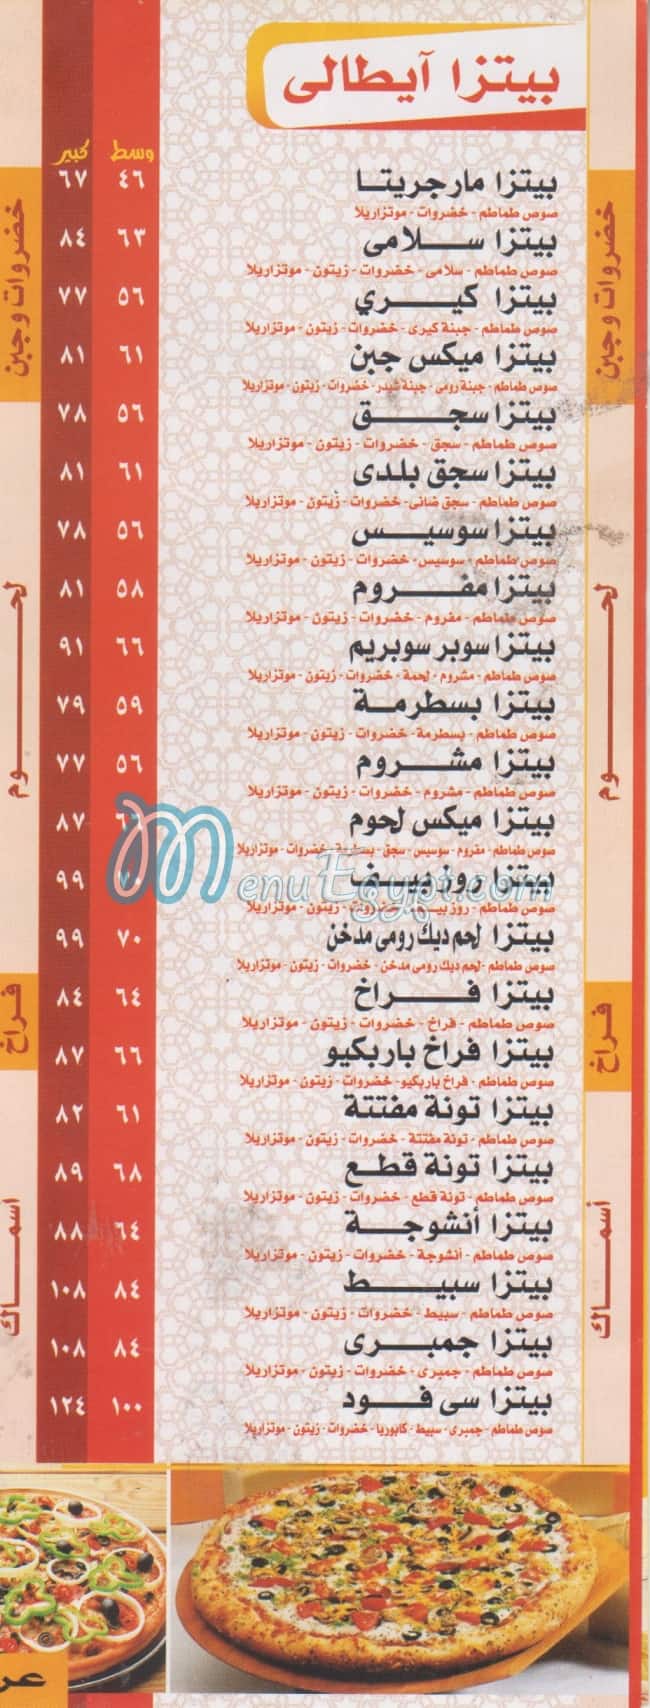 بيتزا آيطالى
وسط كبير
خضروات وجبن
بيتزا مارجريتا ٤٦ ٦٧
صوص طماطم - خضروات - موتزاريلا
بيتزا سلامى ٦٣ ٨٤
صوص طماطم - سلامى - خضروات - زيتون - موتزاريلا
بيتزا كيري ٥٦ ٧٧
صوص طماطم - جبنة كيرى - خضروات - زيتون - موتزاريلا
بيتزا ميكس جبن ٦١ ٨١
صوص طماطم - جبنة رومى - جبنة شيدر - خضروات - زيتون - موتزاريلا
بيتزا سجق ٥٦ ٧٨
صوص طماطم - سجق - خضروات - زيتون - موتزاريلا
بيتزا سجق بلدى ٦١ ٨١
صوص طماطم - سجق ضانى - خضروات - زيتون - موتزاريلا
بيتزا سوسيس ٥٦ ٧٨
صوص طماطم - سوسيس - خضروات - زيتون - موتزاريلا
لحوم
بيتزا مفروم ٥٨ ٨١
صوص طماطم - مفروم - خضروات - زيتون - موتزاريلا
بيتزا سوبر سوبريم ٦٦ ٩١
صوص طماطم - مشروم - لحمة - خضروات - زيتون - موتزاريلا
بيتزا بسطرمة ٥٩ ٧٩
صوص طماطم - بسطرمة - خضروات - زيتون - موتزاريلا
بيتزا مشروم ٥٦ ٧٧
صوص طماطم - مشروم - خضروات - زيتون - موتزاريلا
بيتزا ميكس لحوم ٨٧
صوص طماطم - مفروم - سوسيس - سجق - بسطرمة - خضروات - موتزاريلا
MenuEgypt.com
بيتزا روز بيف ٧٠ ٩٩
صوص طماطم - روز بيف - خضروات - زيتون - موتزاريلا
بيتزا لحم ديك رومى مدخن ٧٠ ٩٩
صوص طماطم - لحم ديك رومى مدخن - خضروات - زيتون - موتزاريلا
فراخ
بيتزا فراخ ٦٤ ٨٤
صوص طماطم - فراخ - خضروات - زيتون - موتزاريلا
بيتزا فراخ باربكيو ٦٦ ٨٧
صوص طماطم - فراخ باربكيو - خضروات - زيتون - موتزاريلا
بيتزا تونة مفتتة ٦١ ٨٢
صوص طماطم - تونة مفتتة - خضروات - زيتون - موتزاريلا
بيتزا تونة قطع ٦٨ ٨٩
صوص طماطم - تونة قطع - خضروات - زيتون - موتزاريلا
أسماك
بيتزا أنشوجة ٦٤ ٨٨
صوص طماطم - أنشوجة - خضروات - زيتون - موتزاريلا
بيتزا سبيط ٨٤ ١٠٨
صوص طماطم - سبيط - خضروات - زيتون - موتزاريلا
بيتزا جمبرى ٨٤ ١٠٨
صوص طماطم - جمبرى - خضروات - زيتون - موتزاريلا
بيتزا سى فود ١٠٠ ١٢٤
صوص طماطم - جمبرى - سبيط - كابوريا - خضروات - زيتون - موتزاريلا